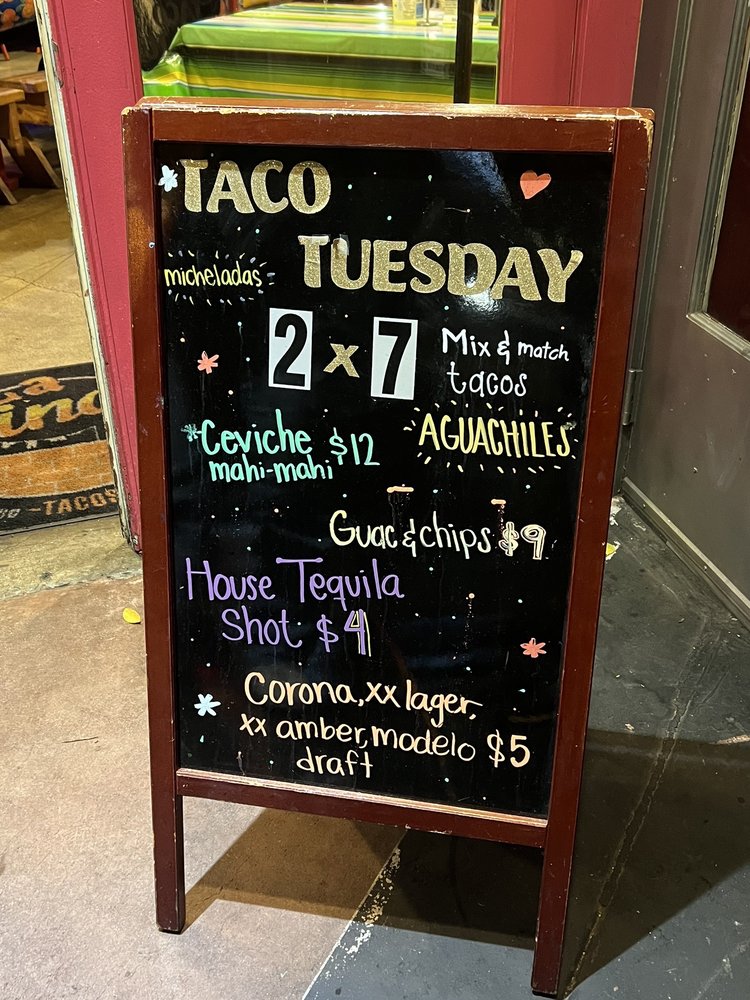 TACO
TUESDAY
micheladas
2 x 7
Mix & match
tacos
Ceviche $12
mahi-mahi
AGUACHILES
Guac & chips $9
House Tequila
Shot $4
Corona, xx lager,
xx amber, modelo $5
draft
- TACOS